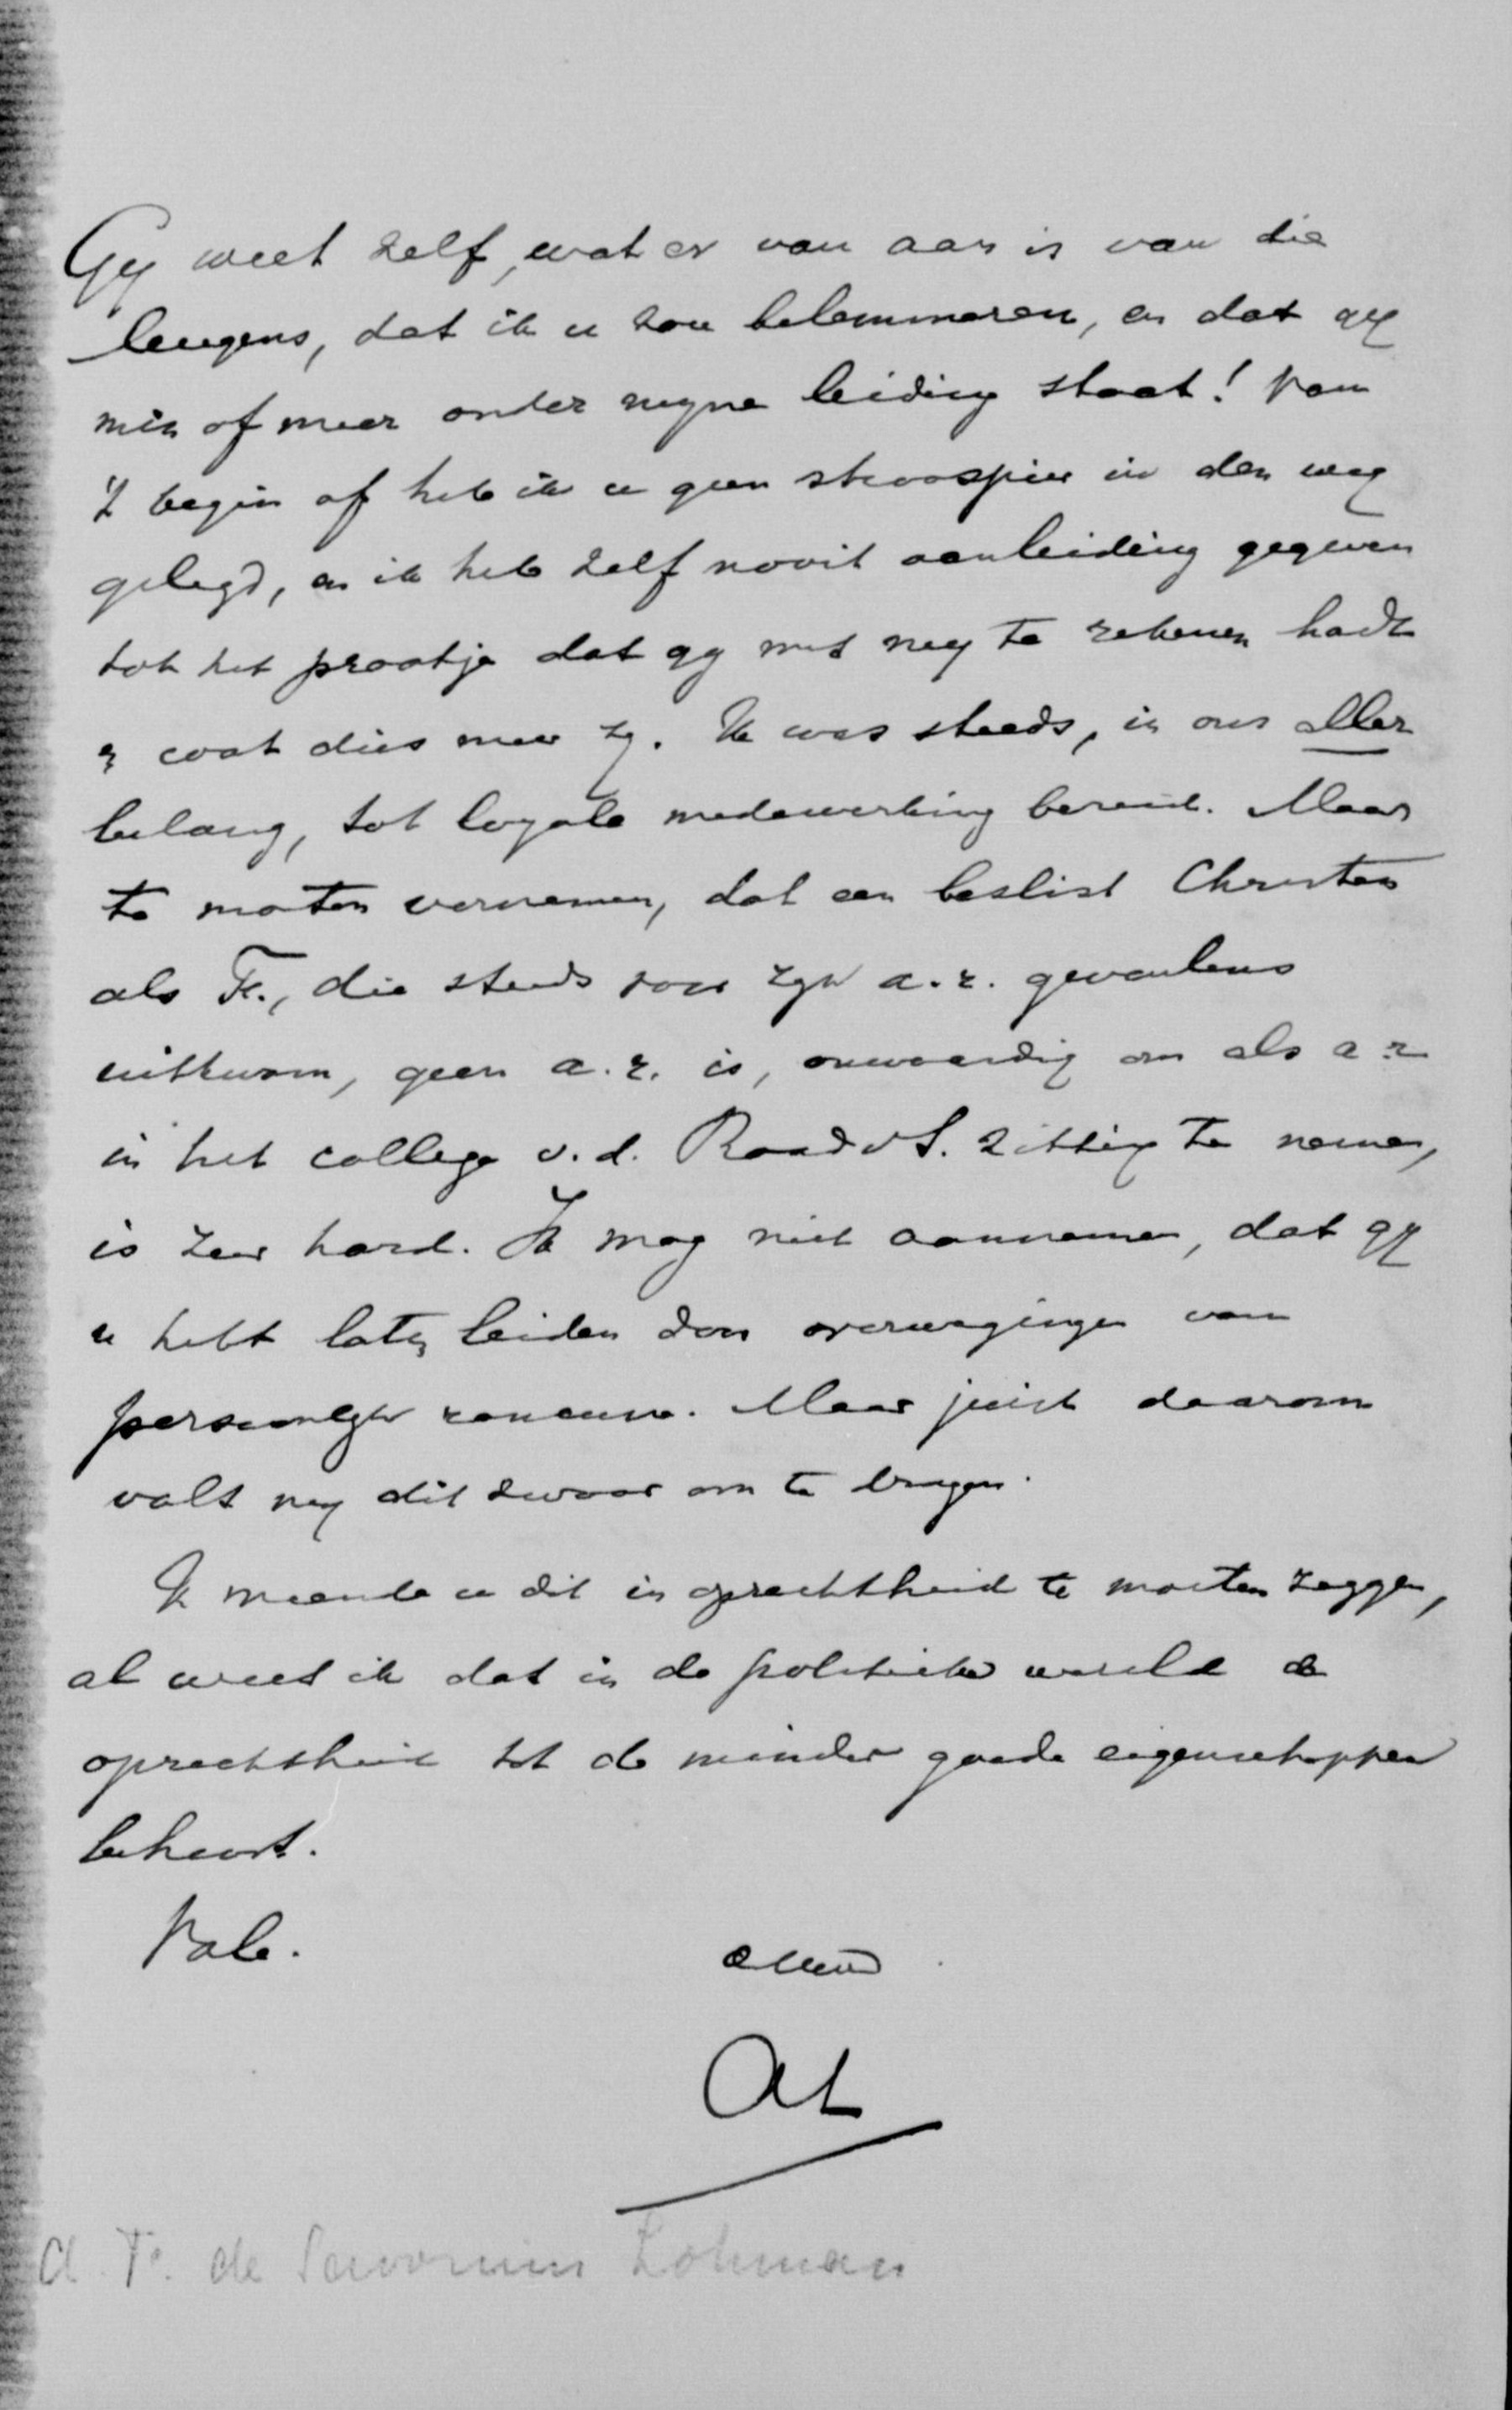 Gij weet zelf, wat er van aan is van die
leugens, dat ik u zou belemmeren, en dat gij
min of meer onder mijne leiding staat! Van
't begin af heb ik u geen stroospier in den weg
gelegd, en ik heb zelf nooit aanleiding gegeven
tot het praatje dat gij met mij te rekenen hadt
& wat dies meer zij. Ik was steeds, in ons aller
belang, tot loyale medewerking bereid. Maar
te moeten vernemen, dat een beslist Christen
als F., die steeds voor zijn a.r. gevoelens
uitkwam, geen a.r. is, onwaardig om als a.r.
in het college v.d. Raad v S. zitting te nemen,
is zeer hard. Ik mag niet aannemen, dat gij
u hebt laten leiden door overwegingen van
persoonlijke rancune. Maar juist daarom
valt mij dit zwaar om te dragen.
Ik meende u dit in oprechtheid te moeten zeggen,
al weet ik dat in de politieke wereld de
oprechtheid tot de minder goede eigenschappen
behoort.
Vale.
AL
A. F. de Savornin Lohman